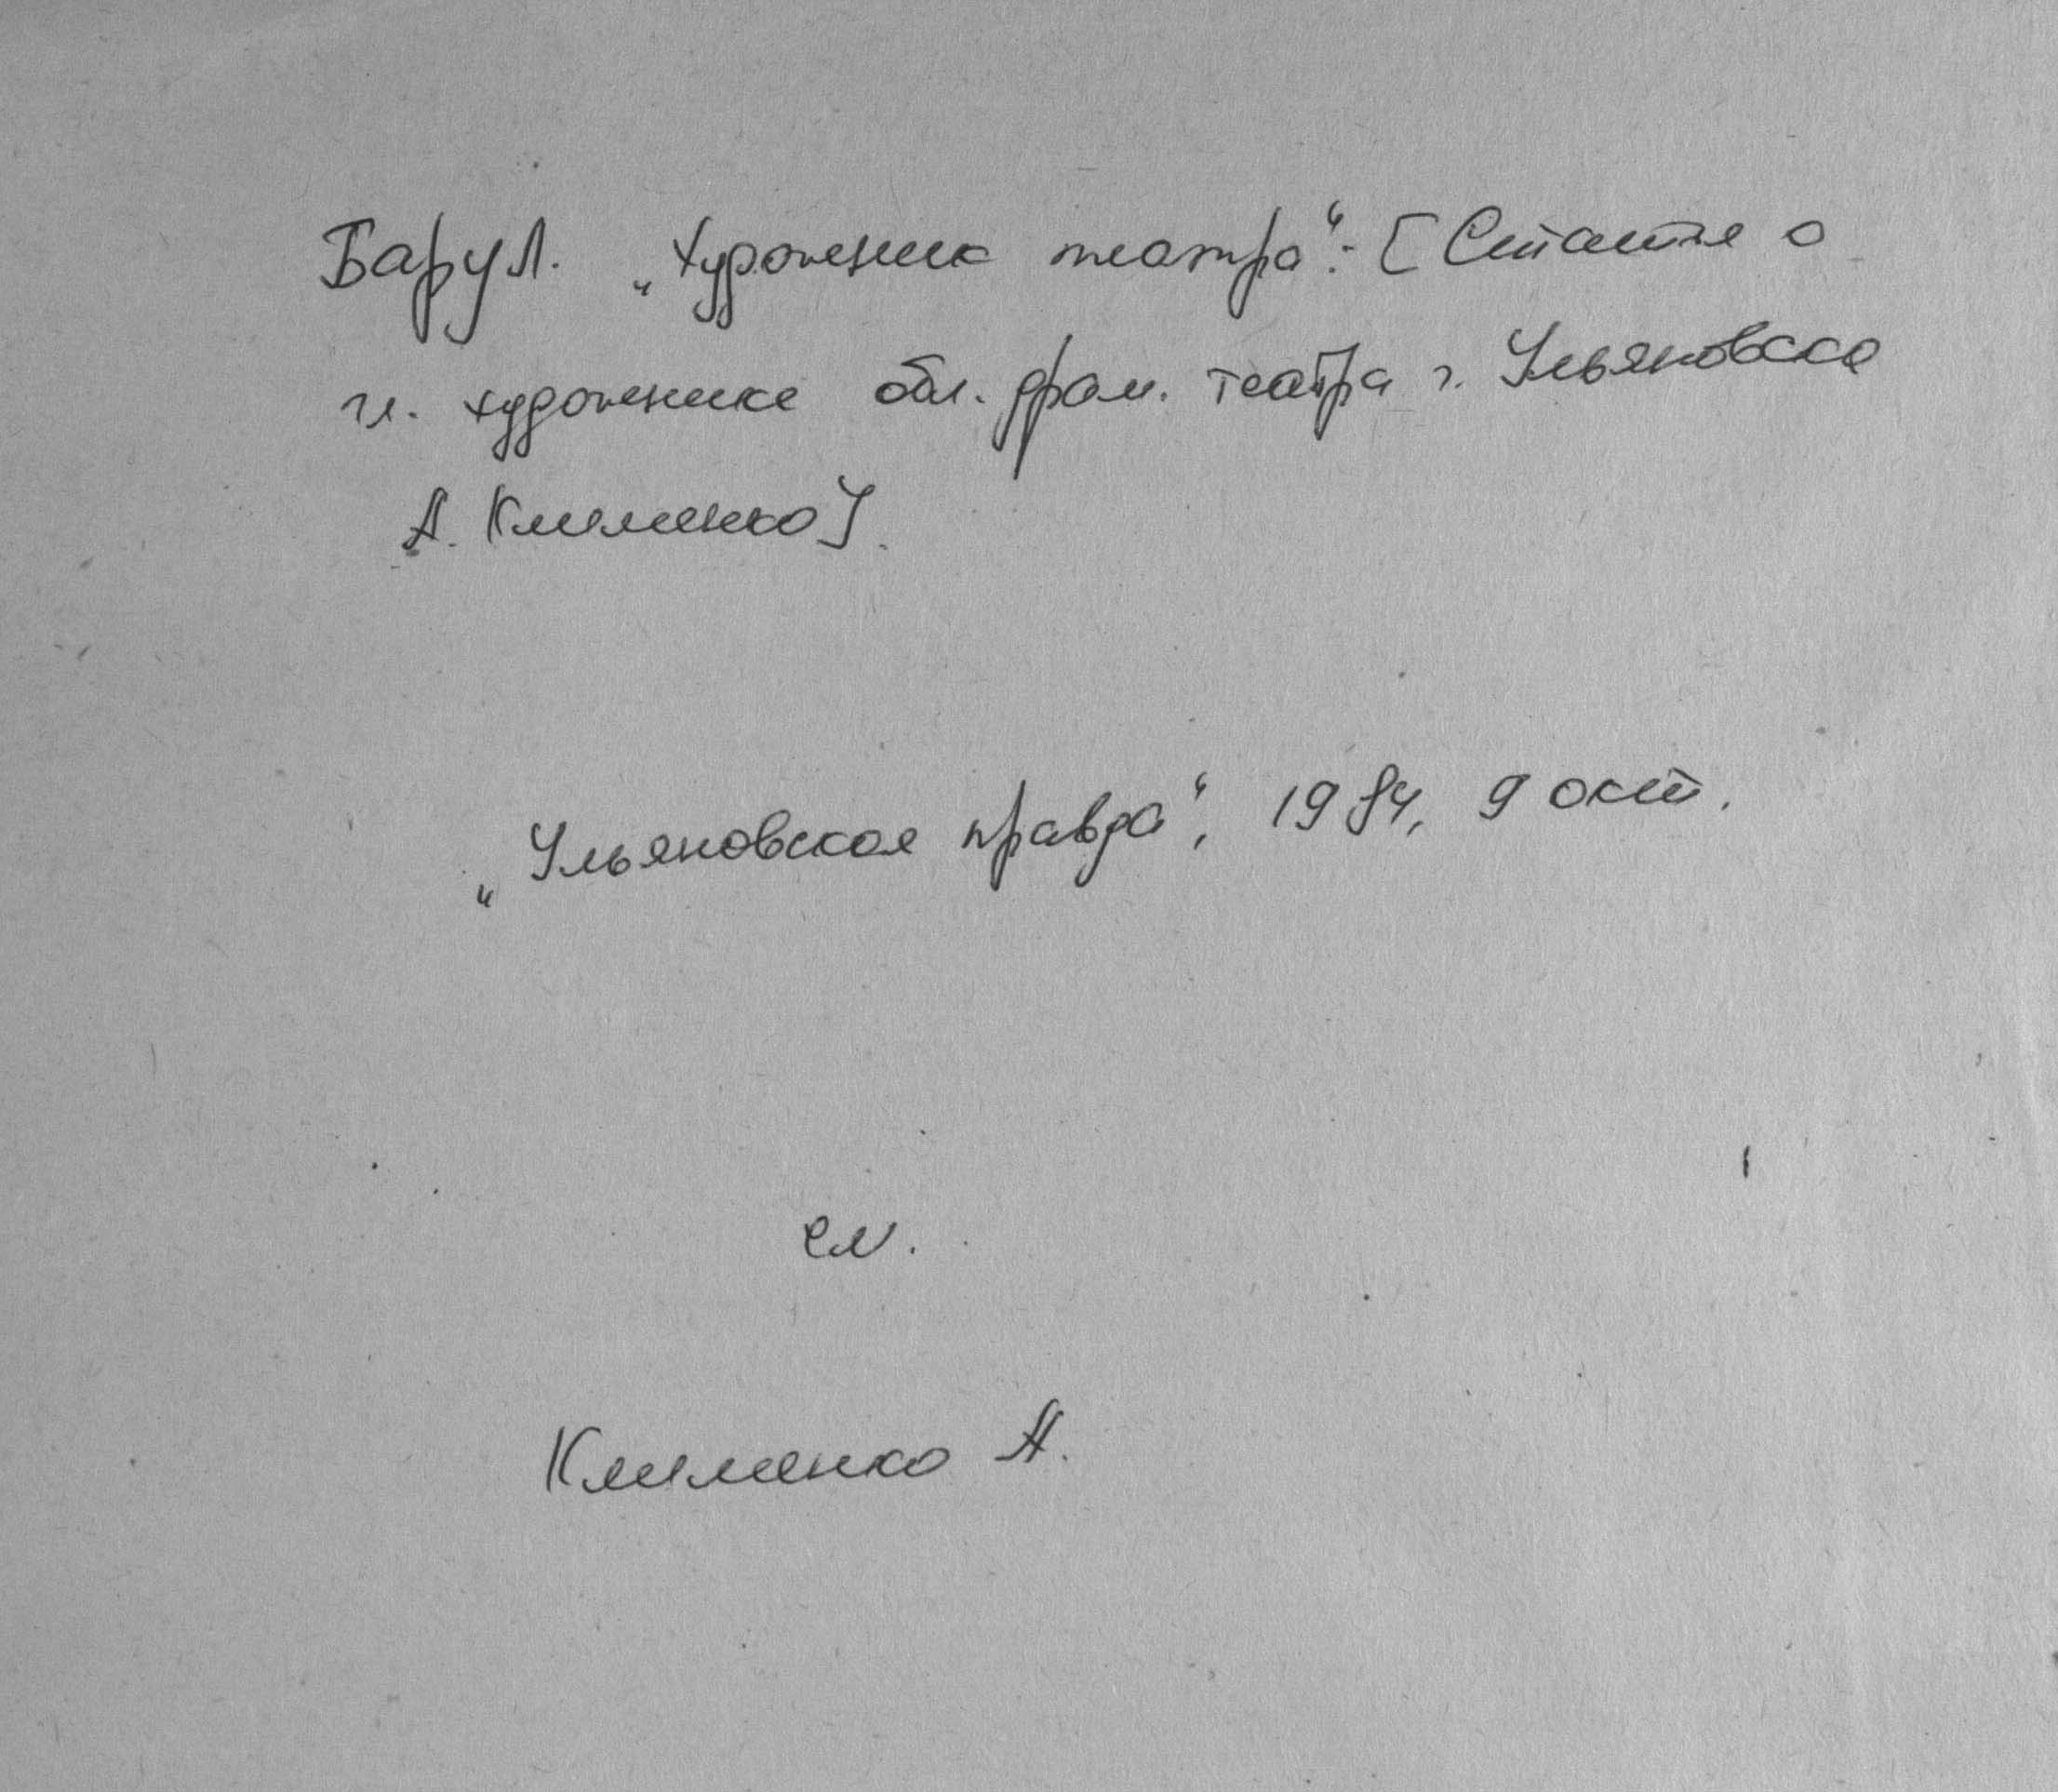 Бару Л. „Художник театра“: [Статья о
гл. художнике обл. драм. театра г. Ульяновска
А. Клименко].
„Ульяновская правда“, 1984, 9 окт.
см.
Клименко А.